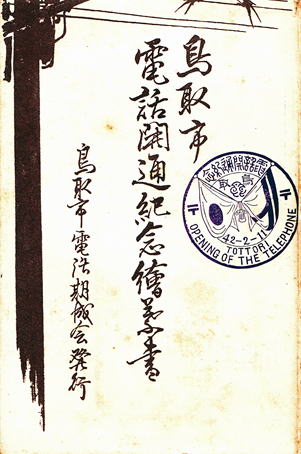 鳥取市
電話開通紀念繪葉書
鳥取市電話期成会発行
電話開通紀念
鳥取
42-2-11
TOTTORI
OPENING OF THE TELEPHONE